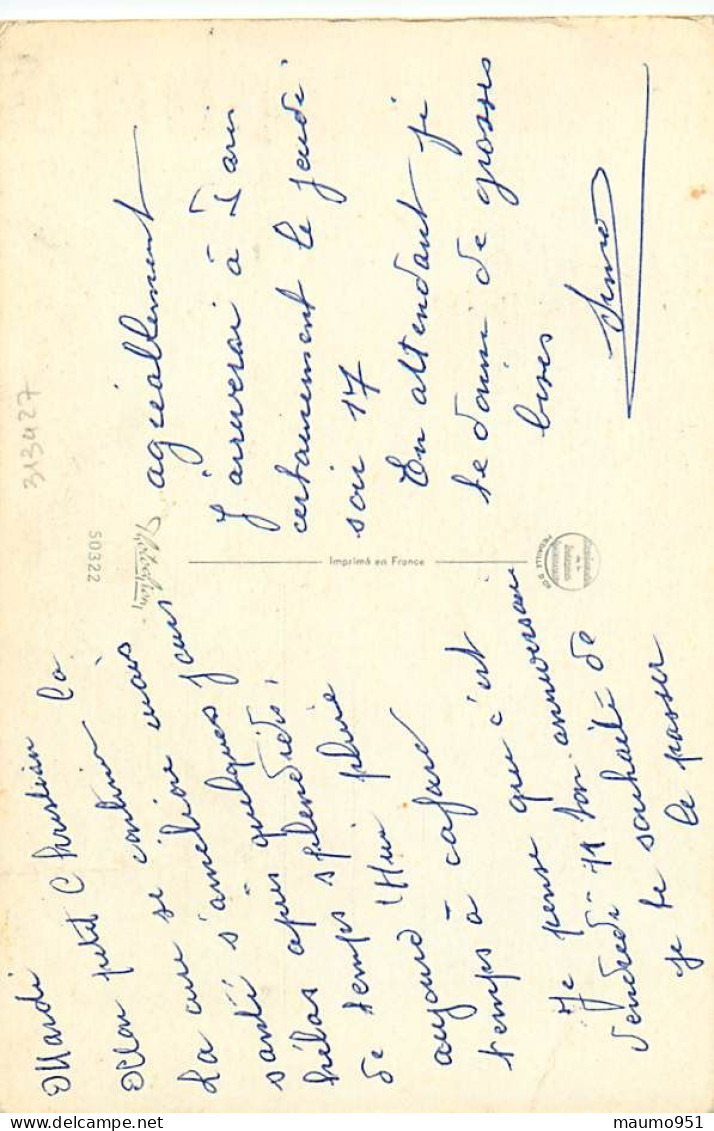 Mardi
Mon petit Christian
La cure se continue la
santé s'améliore mais
hélas après quelques jours
de temps splendides,
aujourd'hui pluie
temps à cafard
Je pense que c'est
vendredi 11 ton anniversaire
je te souhaite de
le passer
agréablement
J'arriverai à Paris
certainement le jeudi
soir 17
En attendant je
te donne de grosses
bises
Imprimé en France
50322
313427
maumo951